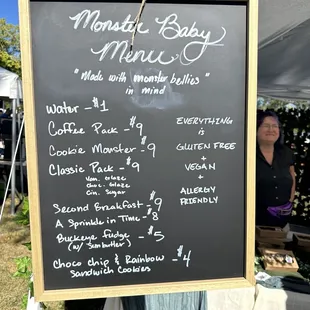 Monster Baby
Menu
"Made with monster bellies"
in mind
Water - $1
Coffee Pack - $9
Cookie Monster - $9
Classic Pack - $9
Van. Glaze
Choc. Glaze
Cin. Sugar
Second Breakfast - $9
A Sprinkle in Time - $8
Buckeye fudge - $5
(w/ Sunbutter)
Choco chip & Rainbow - $4
Sandwich Cookies
EVERYTHING
is
GLUTEN FREE
+
VEGAN
+
ALLERGY
FRIENDLY